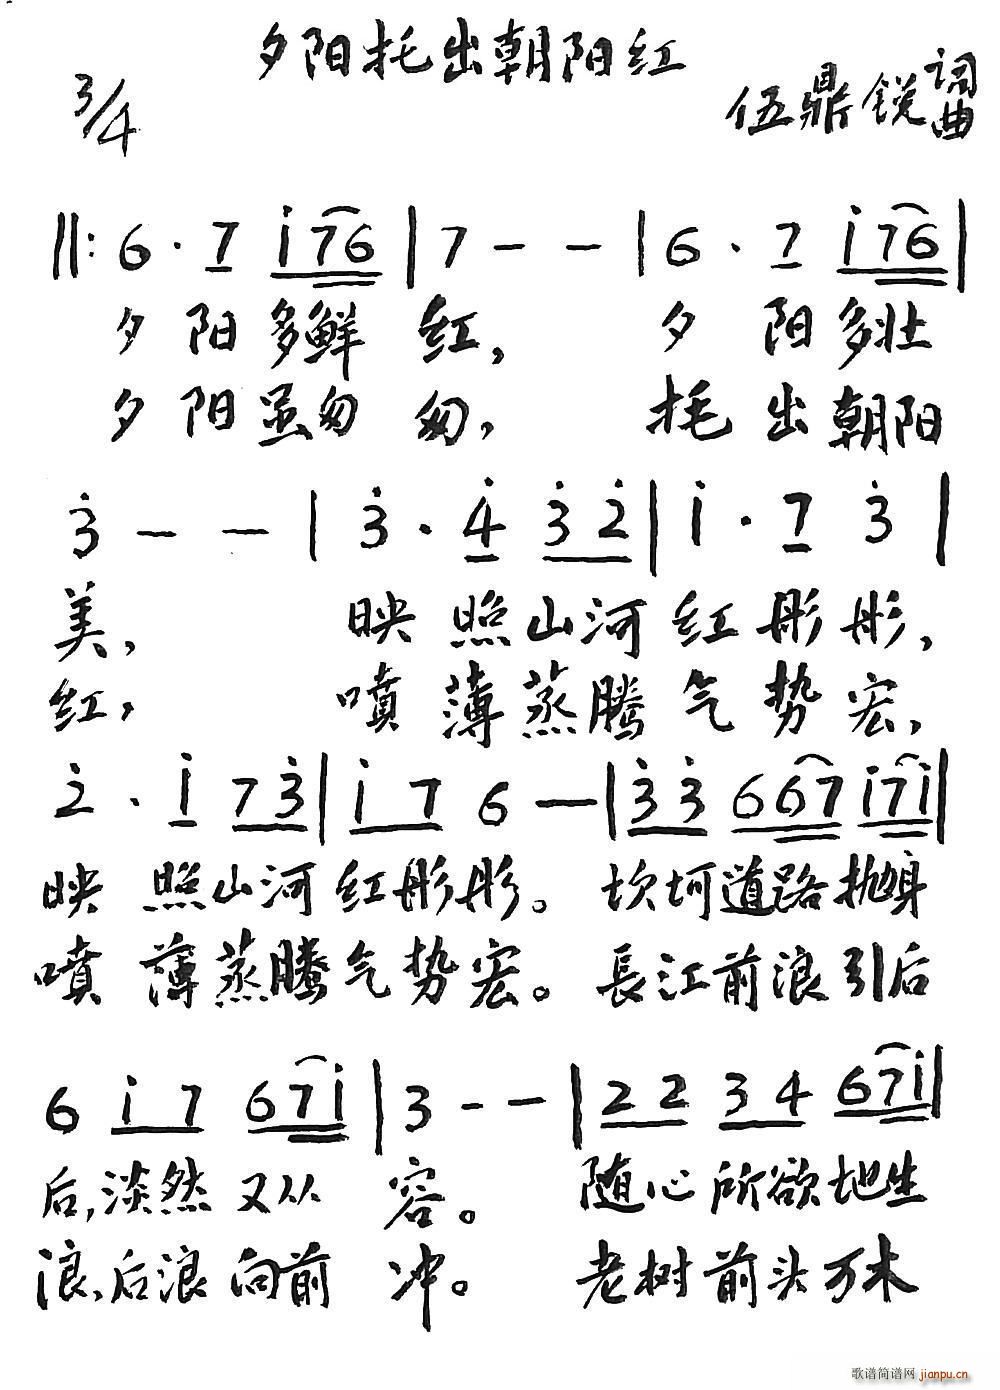 夕阳托出朝阳红
3/4
伍鼎锐 词曲
‖: 6 · 7 i 7 6 | 7 - - | 6 · 7 i 7 6 |
夕 阳 多鲜 红, 夕 阳 多壮
夕 阳 虽匆 匆, 托 出 朝阳
3 - - | 3 · 4 3 2 | i · 7 3 |
美, 映 照山河 红 彤 彤,
红, 噴 薄蒸腾 气 势 宏,
2 · i 7 3 | i 7 6 - | 3 3 6 6 7 i 7 i |
映 照山河 红彤彤。 坎坷道路抛身
噴 薄蒸腾 气势宏。 長江前浪引后
6 i 7 6 7 i | 3 - - | 2 2 3 4 6 7 i |
后,淡然 又从 容。 随心所欲地生
浪、后浪向前 冲。 老树前头万木
歌谱简谱网 jianpu.cn